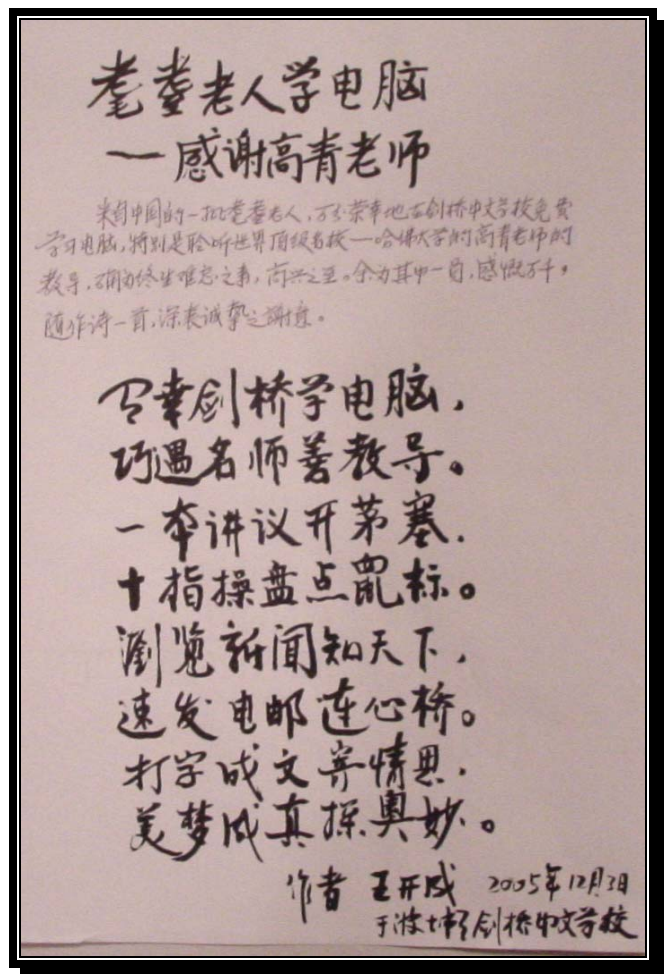 耄耋老人学电脑
—感谢高青老师
来自中国的一批耄耋老人，万分荣幸地在剑桥中文学校免费
学习电脑，特别是聆听世界顶级名校—哈佛大学的高青老师的
教导，确为终生难忘之事，高兴之至。余为其中一员，感慨万千，
随作诗一首，深表诚挚之謝意。
今幸剑桥学电脑，
巧遇名师善教导。
一本讲议开茅塞，
十指操盘点鼠标。
瀏览新闻知天下，
速发电邮连心桥。
打字成文寄情思，
美梦成真探奥妙。
作者 王开成 2005年12月3日
于波士顿剑桥中文学校